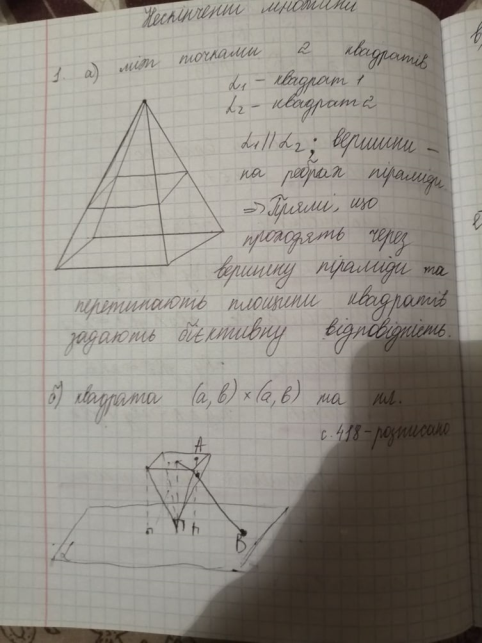 Нескінченні множини
1. а) між точками 2 квадратів
L₁ – квадрат 1
L₂ – квадрат 2
L₁ || L₂ ; вершини –
на ребрах піраміди
⇒ Прямі, що
проходять через
вершину піраміди та
перетинають площини квадратів
задають бієктивну відповідність.
б) квадрата (a, b) × (a, b) та пл.
с. 418 – розписано
A
B